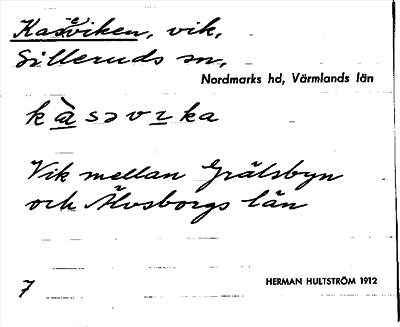 Kaseviken, vik,
Silleruds sn,
Nordmarks hd, Värmlands län
kàsəvɪka
Vik mellan Grälsbyn
och Älvsborgs län
7
HERMAN HULTSTRÖM 1912